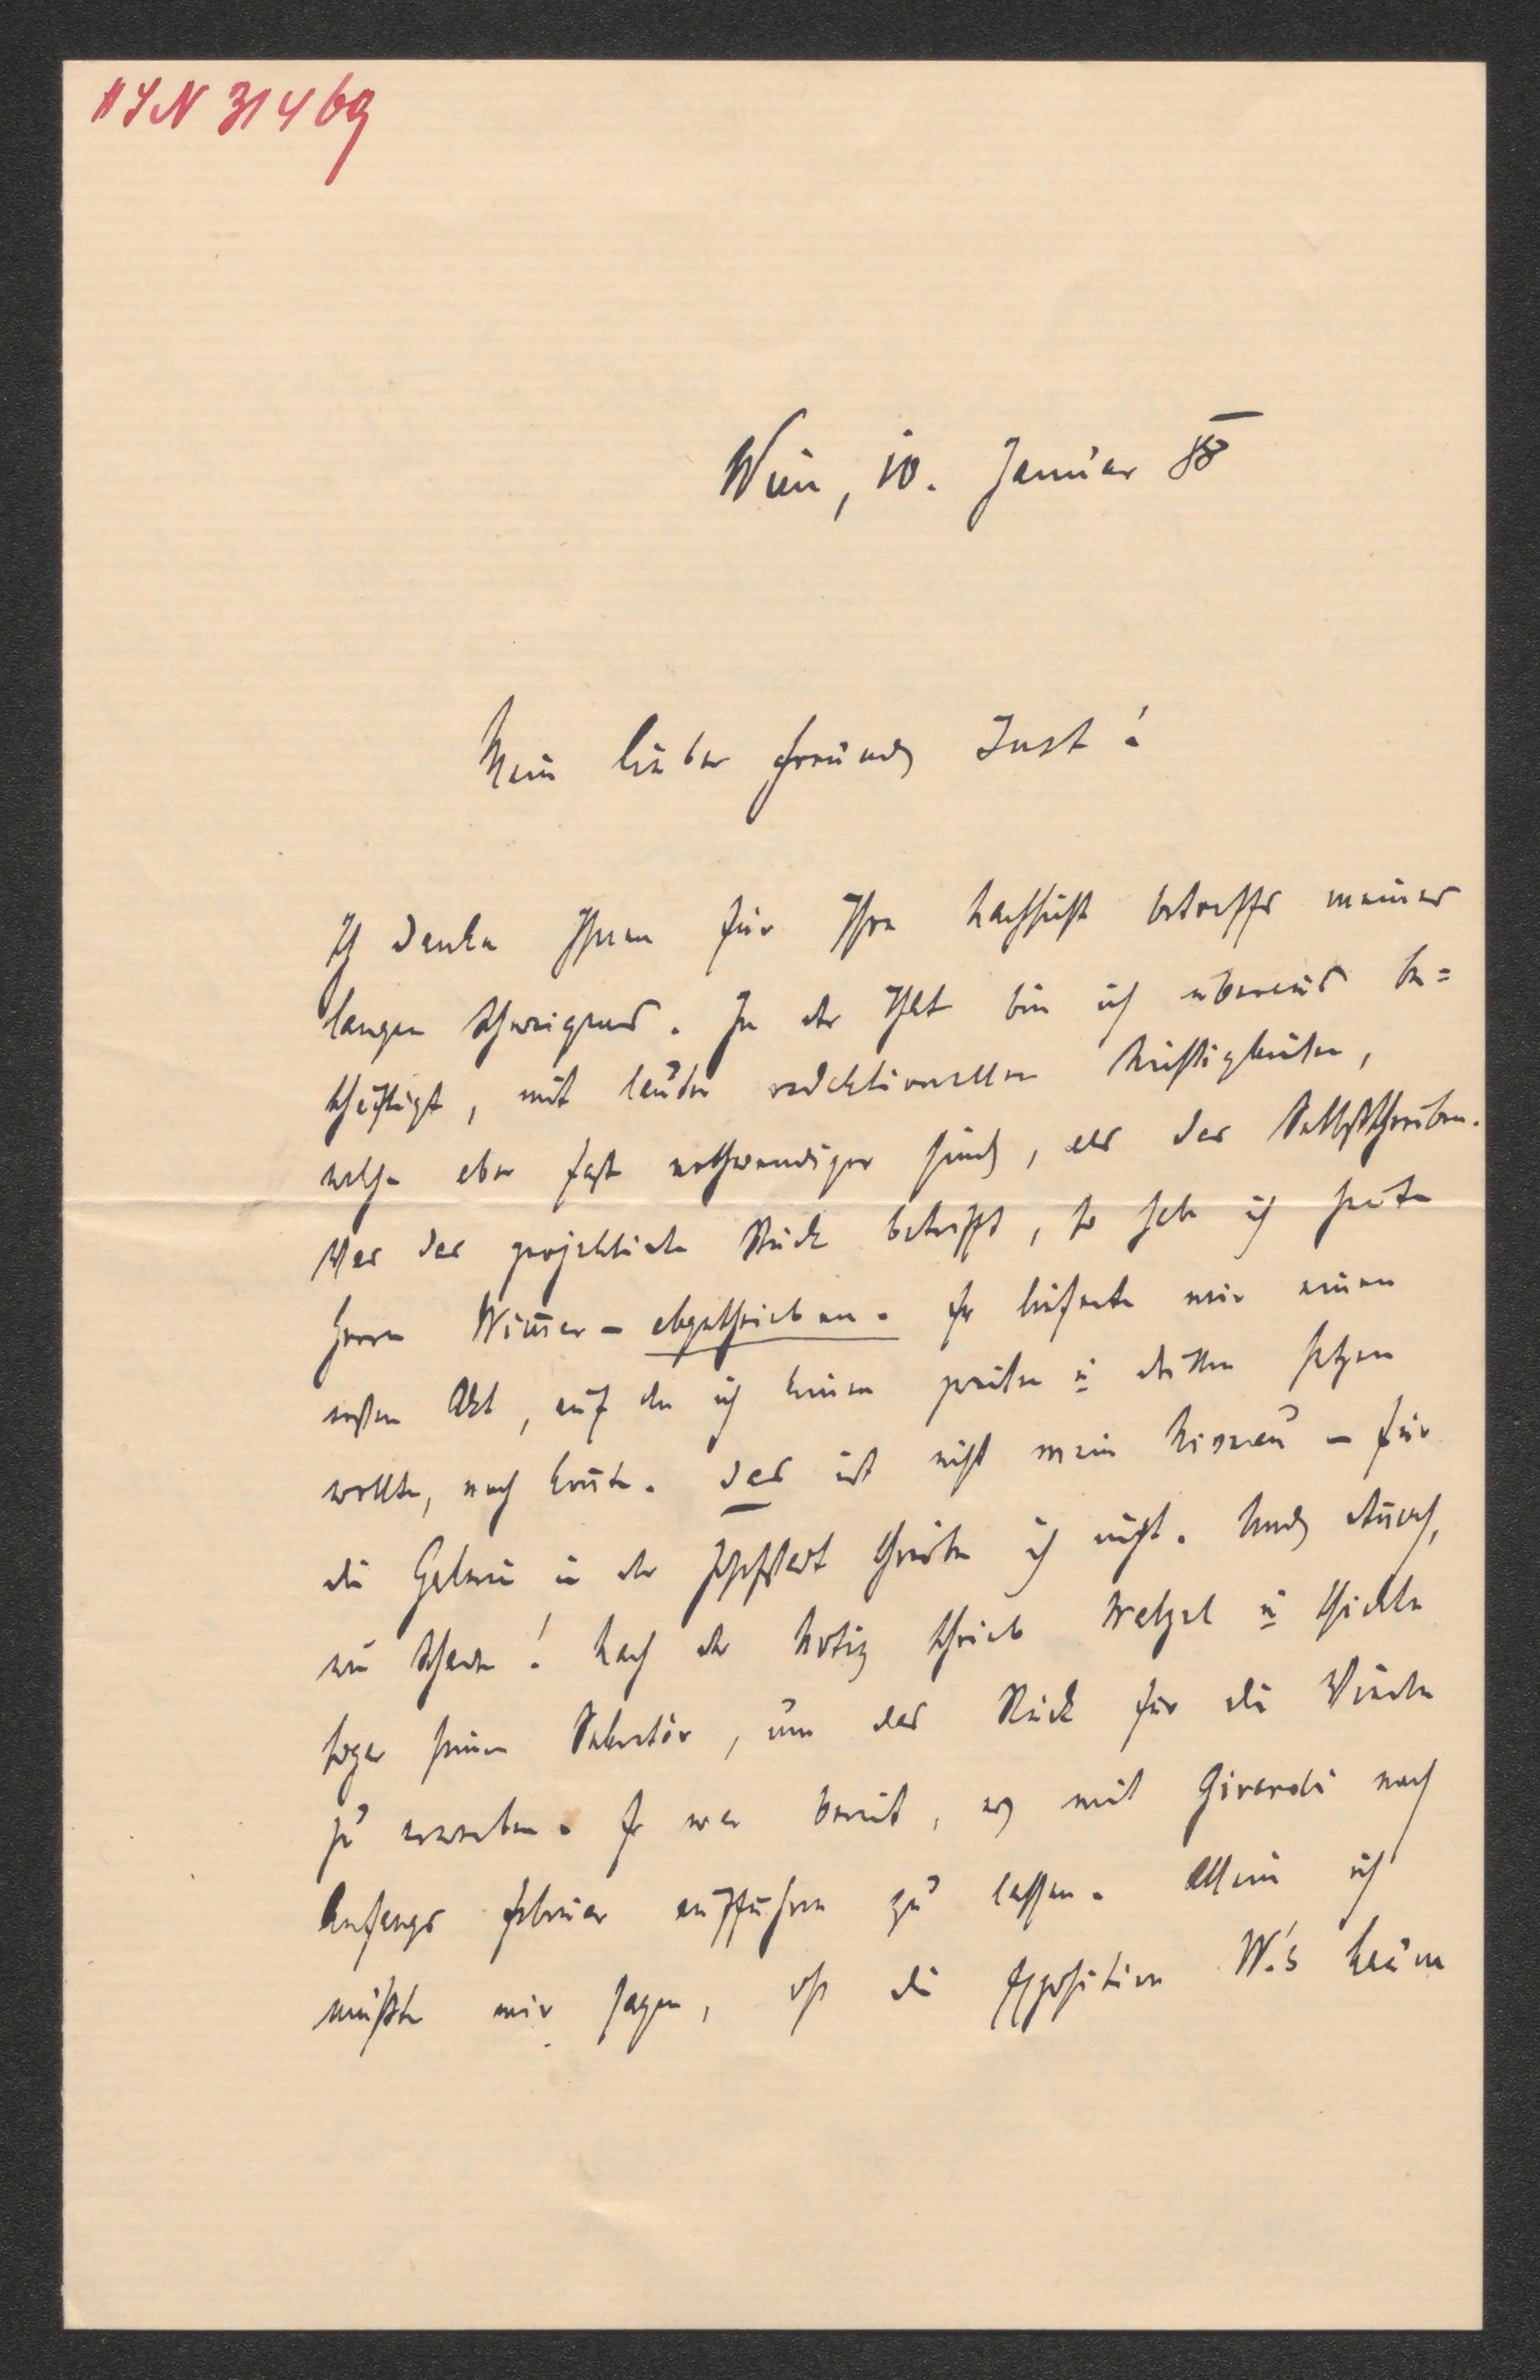 HIN 31469
Wien, 10. Januar 88
Mein lieber Freund Just!
Ich danke Ihnen für Ihre Nachsicht betreffs meines
langen Schweigens. In der That bin ich überaus be=
schäftigt, mit lauter redaktionellen Nichtigkeiten,
welche aber fast nothwendiger sind, als das Selbstschreiben.
Was das projektirte Stück betrifft, so hab ich heute
Herrn Wimmer – abgeschrieben. Er lieferte mir einen
ersten Akt, auf den ich keinen zweiten u dritten setzen
wollte, noch konnte. Das ist nicht mein Niveau – für
die Galerie in der Josefstadt schreibe ich nicht. Und dennoch,
wie schade! Nach der Notiz schrieb Tatzel u schickte
sogar seinen Sekretär, um das Stück für die Wieden
zu erwerben. Er war bereit, es mit Girardi noch
Anfangs Februar aufführen zu lassen. Allein ich
mußte mir sagen, daß die Exposition W.'s kaum